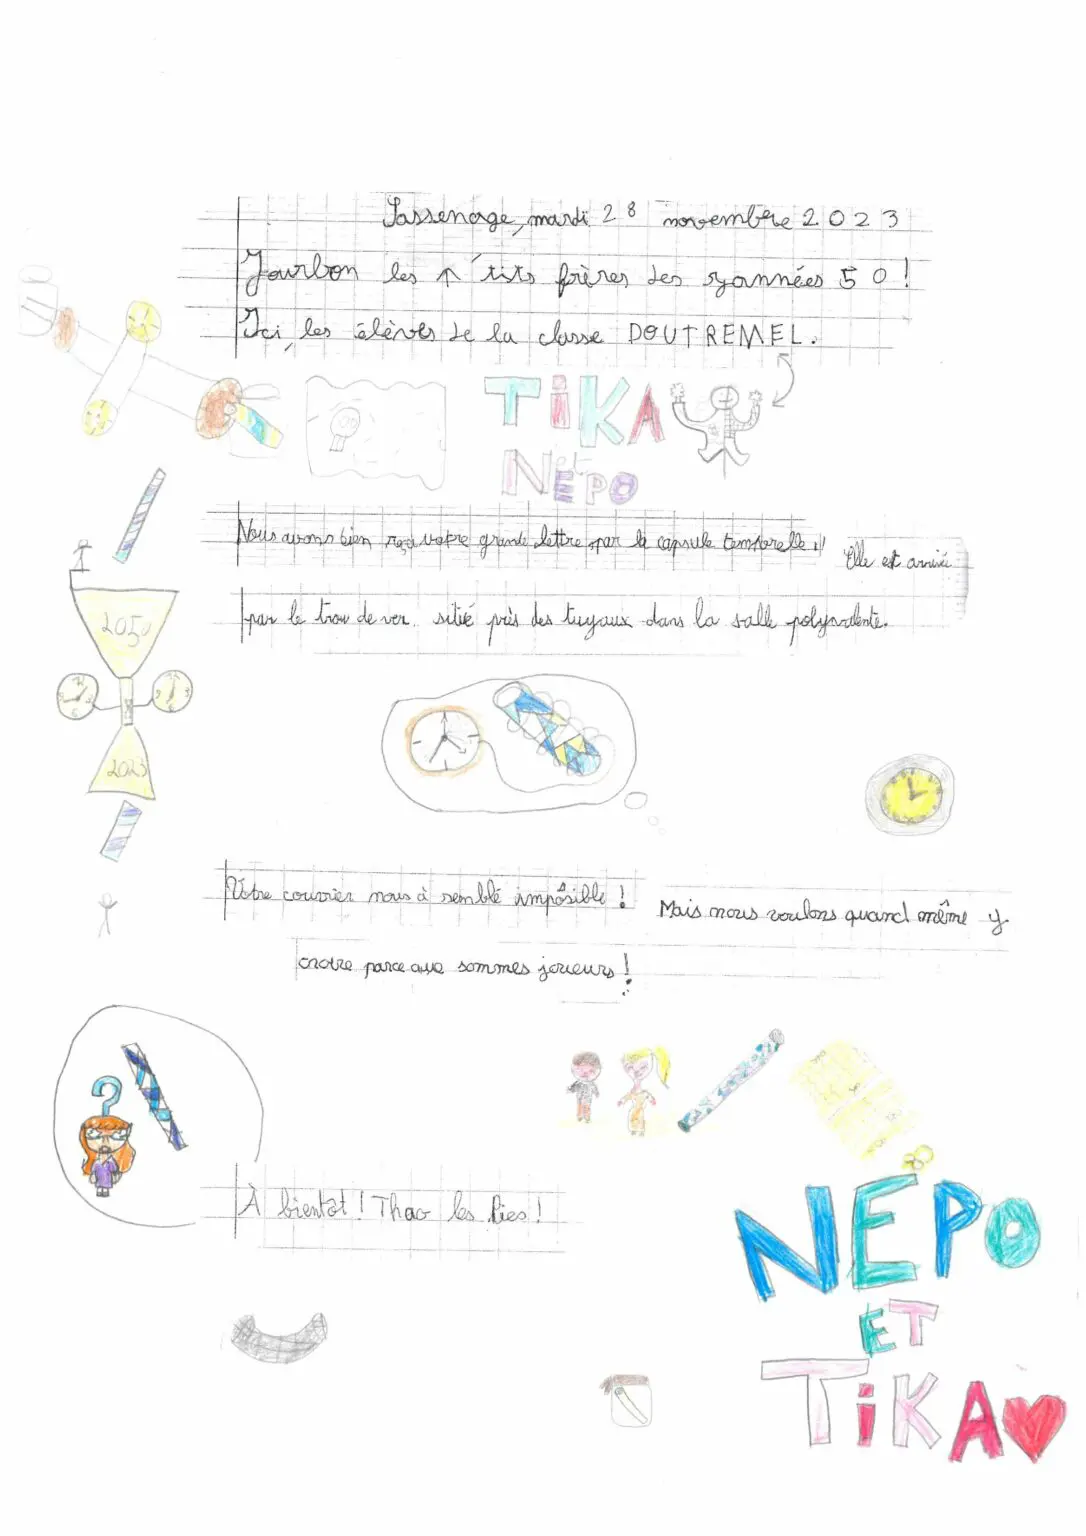 Sassenage, mardi 28 novembre 2023
Jourbon les p'tits frères des zyannées 50!
Ici, les élèves de la classe DOUTREMEL.
TiKA
et
NEPO
Nous avons bien reçu votre grande lettre par la capsule temporelle !! Elle est arrivée
par le trou de ver situé près des tuyaux dans la salle polyvalente.
2050
2023
Votre courrier nous à semblé impôsible ! Mais nous voulons quand même y
croire parce que sommes joueurs !
?
À bientôt ! Thao les Pies !
NEPO
ET
TiKA